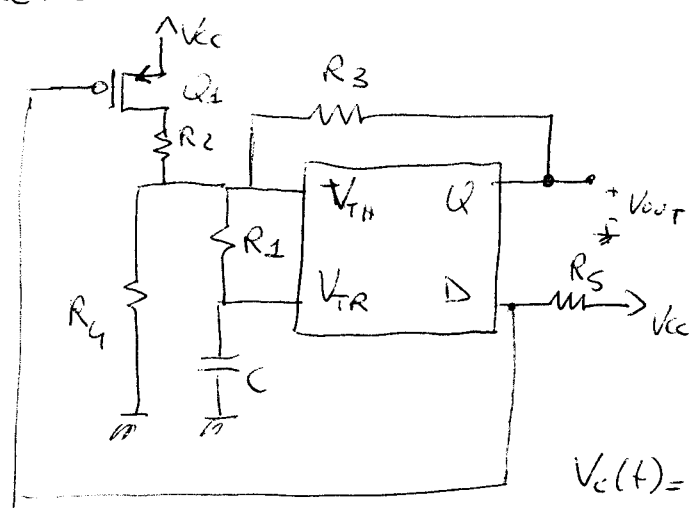 Vcc
Q1
R2
R3
VTH Q
+
VOUT
-
R1
R5
VTR D
Vcc
R4
C
Vc(t)=